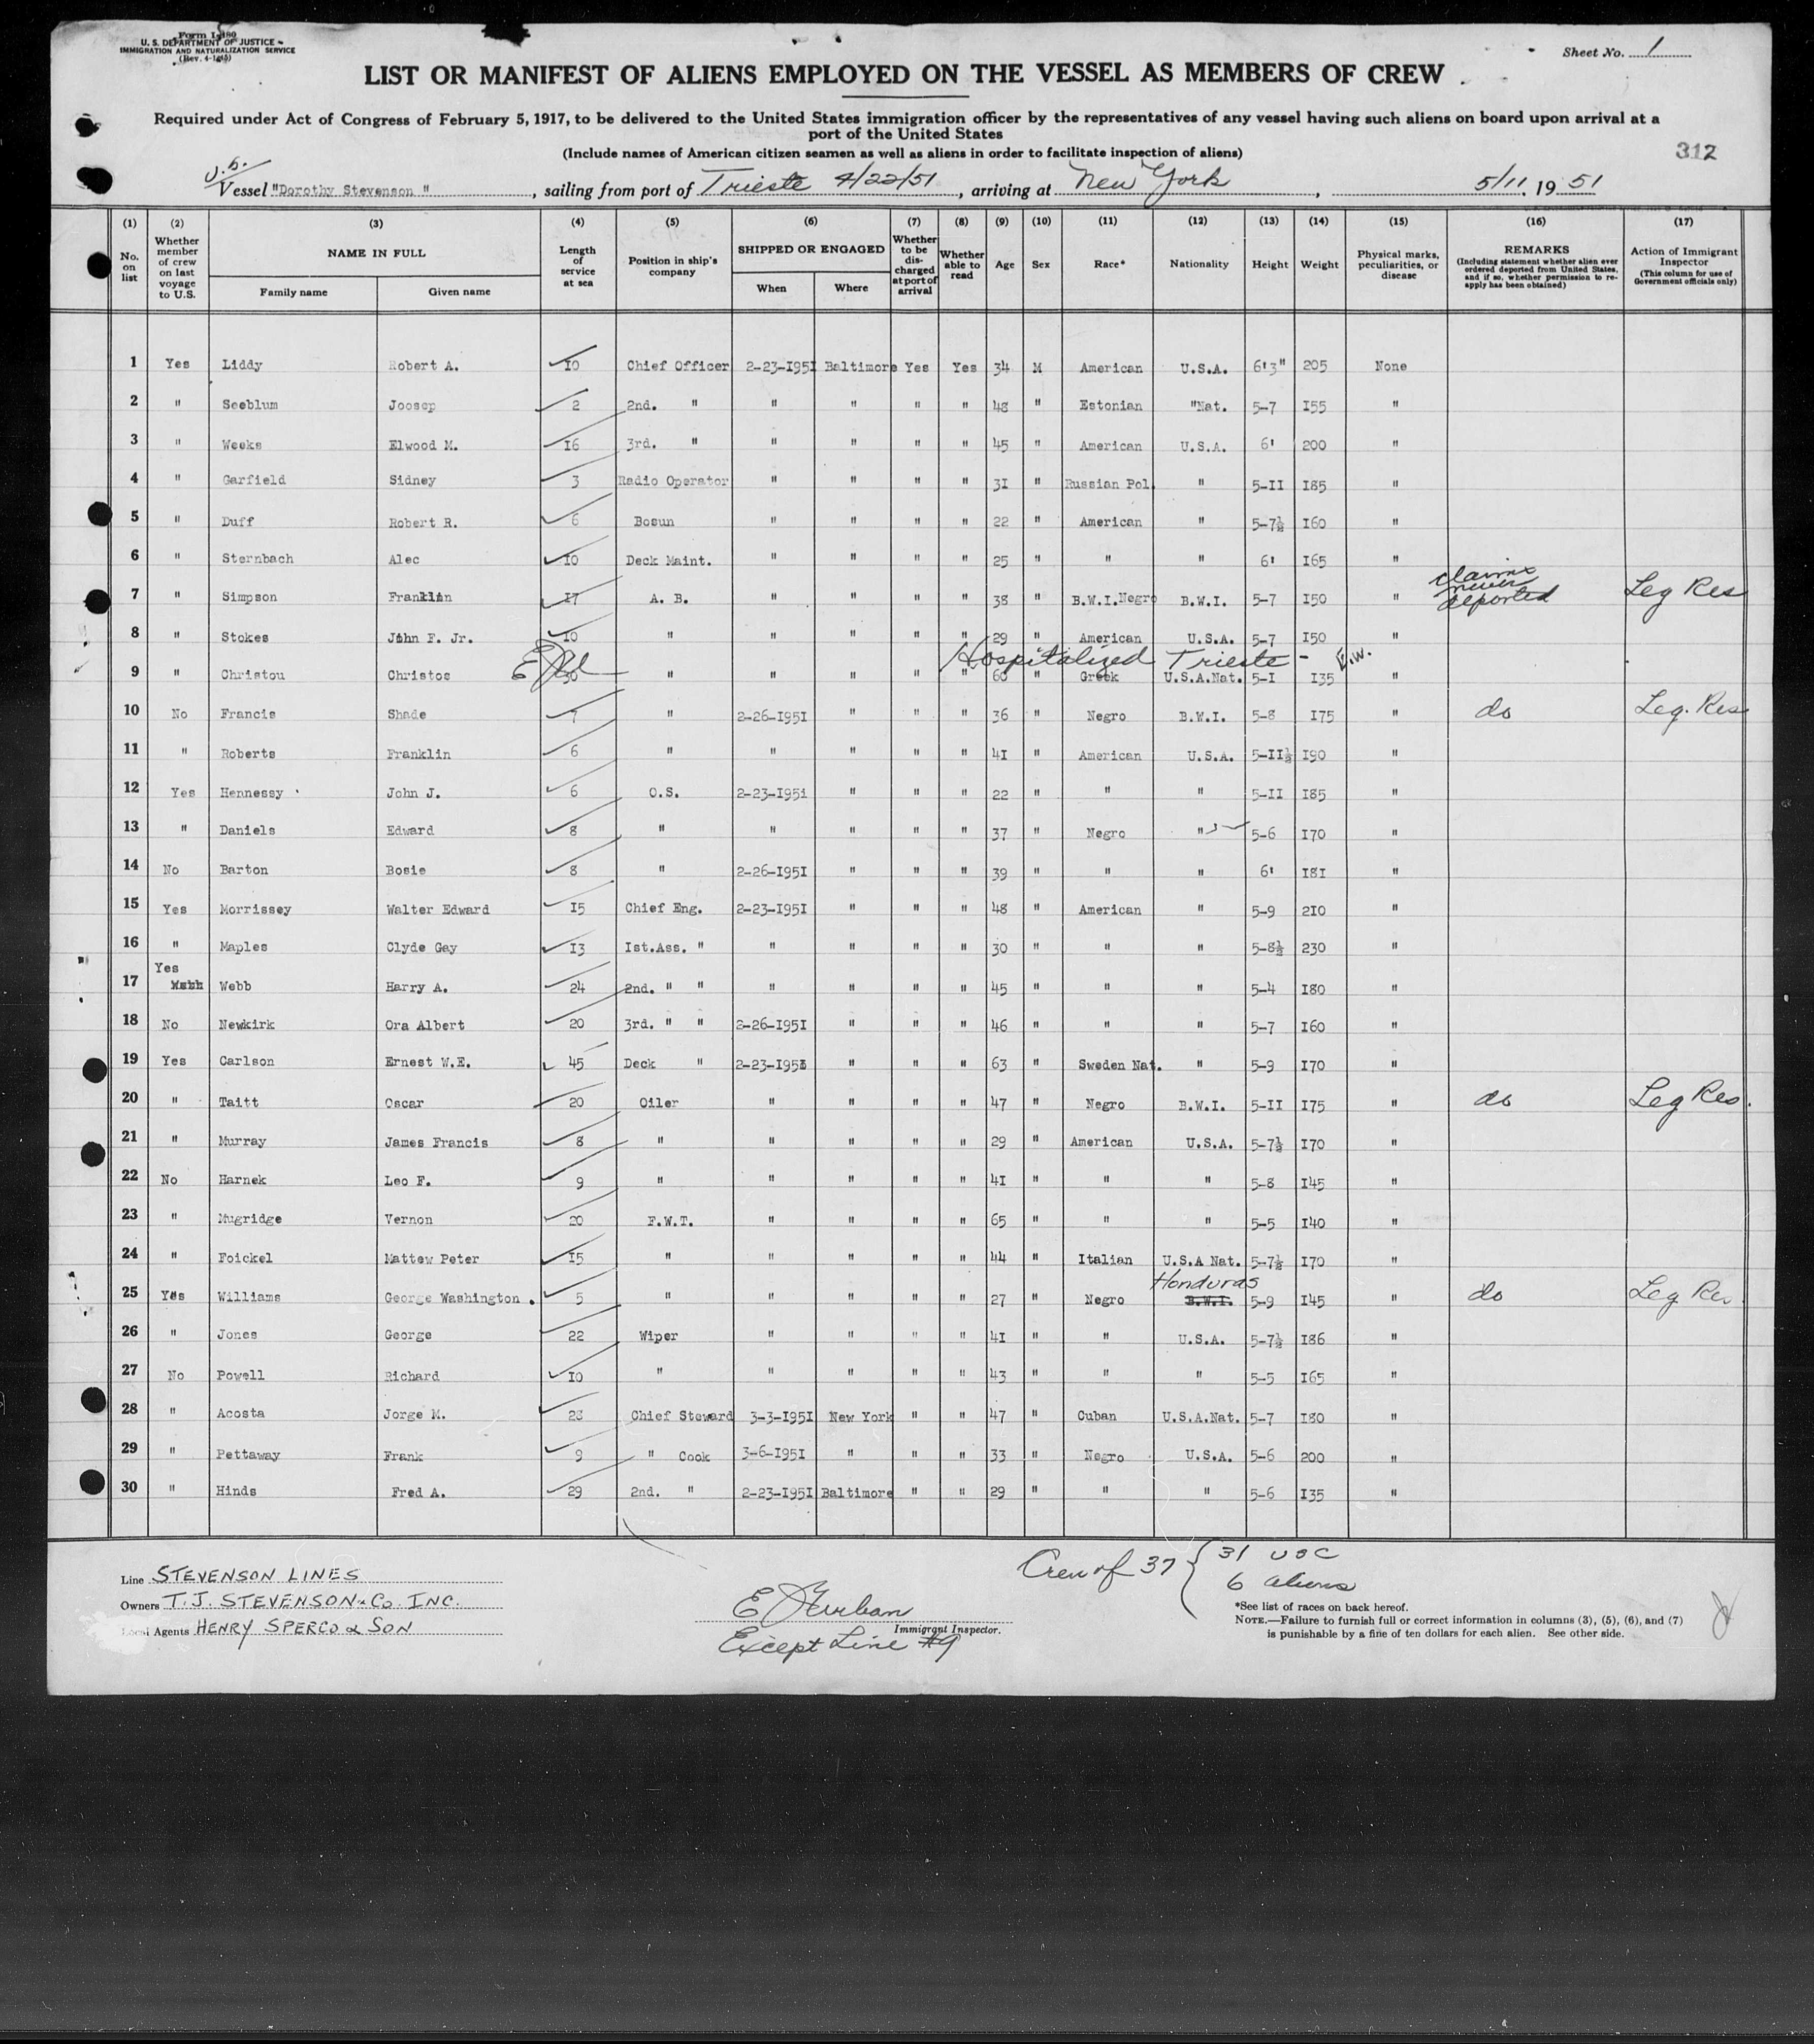 Form I-480
U. S. DEPARTMENT OF JUSTICE
IMMIGRATION AND NATURALIZATION SERVICE
(Rev. 4-1-45)
Sheet No. 1
LIST OR MANIFEST OF ALIENS EMPLOYED ON THE VESSEL AS MEMBERS OF CREW
Required under Act of Congress of February 5, 1917, to be delivered to the United States immigration officer by the representatives of any vessel having such aliens on board upon arrival at a
port of the United States
(Include names of American citizen seamen as well as aliens in order to facilitate inspection of aliens)
312
Vessel "Dorothy Stevenson ", sailing from port of Trieste 4/22/51, arriving at New York, 5/11, 19 51
(1) (2) (3) (4) (5) (6) (7) (8) (9) (10) (11) (12) (13) (14) (15) (16) (17)
No. on list
Whether member of crew on last voyage to U.S.
NAME IN FULL
Family name
Given name
Length of service at sea
Position in ship's company
SHIPPED OR ENGAGED
When
Where
Whether to be discharged at port of arrival
Whether able to read
Age
Sex
Race*
Nationality
Height
Weight
Physical marks, peculiarities, or disease
REMARKS
(Including statement whether alien ever ordered deported from United States, and if so, whether permission to re-apply has been obtained)
Action of Immigrant Inspector
(This column for use of Government officials only)
1 Yes Liddy Robert A. 10 Chief Officer 2-23-1951 Baltimore Yes Yes 34 M American U.S.A. 6'3" 205 None
2 " Seeblum Joosep 2 2nd. " " " " " 48 " Estonian "Nat. 5-7 155 "
3 " Weeks Elwood M. 16 3rd. " " " " " 45 " American U.S.A. 6' 200 "
4 " Garfield Sidney 3 Radio Operator " " " " 31 " Russian Pol. " 5-11 185 "
5 " Duff Robert R. 6 Bosun " " " " 22 " American " 5-7½ 160 "
6 " Sternbach Alec 10 Deck Maint. " " " " 25 " " " 6' 165 "
7 " Simpson Franklin 17 A. B. " " " " 38 " B.W.I.Negro B.W.I. 5-7 150 " claims never deported Leg Res
8 " Stokes John F. Jr. 10 " " " " " 29 " American U.S.A. 5-7 150 "
Hospitalized Trieste -
9 " Christou Christos 30 " " " " " 60 " Greek U.S.A.Nat. 5-1 135 "
10 No Francis Shade 7 " 2-26-1951 " " " 36 " Negro B.W.I. 5-8 175 " do Leg. Res
11 " Roberts Franklin 6 " " " " " 41 " American U.S.A. 5-11½ 190 "
12 Yes Hennessy John J. 6 O.S. 2-23-1951 " " " 22 " " " 5-11 185 "
13 " Daniels Edward 8 " " " " " 37 " Negro " 5-6 170 "
14 No Barton Bosie 8 " 2-26-1951 " " " 39 " " " 6' 181 "
15 Yes Morrissey Walter Edward 15 Chief Eng. 2-23-1951 " " " 48 " American " 5-9 210 "
16 " Maples Clyde Gay 13 1st.Ass. " " " " " 30 " " " 5-8½ 230 "
17 Yes Webb Harry A. 24 2nd. " " " " " " 45 " " " 5-4 180 "
18 No Newkirk Ora Albert 20 3rd. " " 2-26-1951 " " " 46 " " " 5-7 160 "
19 Yes Carlson Ernest W.E. 45 Deck " 2-23-1951 " " " 63 " Sweden Nat. " 5-9 170 "
20 " Taitt Oscar 20 Oiler " " " " 47 " Negro B.W.I. 5-11 175 " do Leg Res.
21 " Murray James Francis 8 " " " " " 29 " American U.S.A. 5-7½ 170 "
22 No Harnek Leo F. 9 " " " " " 41 " " " 5-8 145 "
23 " Mugridge Vernon 20 F.W.T. " " " " 65 " " " 5-5 140 "
24 " Foickel Mattew Peter 15 " " " " " 44 " Italian U.S.A Nat. 5-7½ 170 "
25 Yes Williams George Washington . 5 " " " " " 27 " Negro Honduras B.W.I. 5-9 145 " do Leg Res
26 " Jones George 22 Wiper " " " " 41 " " U.S.A. 5-7½ 186 "
27 No Powell Richard 10 " " " " " 43 " " " 5-5 165 "
28 " Acosta Jorge M. 28 Chief Steward 3-3-1951 New York " " 47 " Cuban U.S.A.Nat. 5-7 180 "
29 " Pettaway Frank 9 " Cook 3-6-1951 " " " 33 " Negro U.S.A. 5-6 200 "
30 " Hinds Fred A. 29 2nd. " 2-23-1951 Baltimore " " 29 " " " 5-6 135 "
Line STEVENSON LINES
Owners T. J. STEVENSON & CO. INC.
Local Agents HENRY SPERCO & SON
Immigrant Inspector.
Except Line #9
Crew of 37 { 31 USC
6 aliens
*See list of races on back hereof.
NOTE.—Failure to furnish full or correct information in columns (3), (5), (6), and (7)
is punishable by a fine of ten dollars for each alien. See other side.